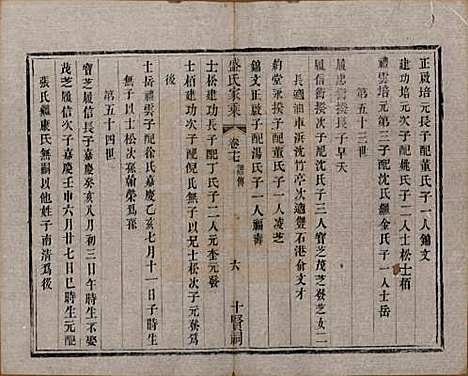 正啟培元長子配董氏子一人錦文
建功培元次子配姚氏子二人士松士栢
禮雲培元第三子配沈氏繼金氏子一人士岳
第五十三世
履忠衡揆長子早夭
履信衡揆次子配沈氏子三人寶芝茂芝發芝女二
長適油車浜沈竹亭次適雙石港俞文才
約堂永揆子配董氏子一人凌芝
錦文正啟子配湯氏子一人福壽
盛氏家乗
卷七
譜傳
六
十賢祠
士松建功長子配丁氏子二人元奎元發
士栢建功次子配倪氏無子以兄士松次子元發爲
後
士岳禮雲子配徐氏嘉慶乙亥七月十一日子時生
無子以士松次孫翰榮爲孫
第五十四世
寶芝履信長子嘉慶癸亥八月初三日午時生不娶
茂芝履信次子嘉慶壬申六月廿七日丑時生元配
張氏繼康氏無嗣以他姓子南清爲後